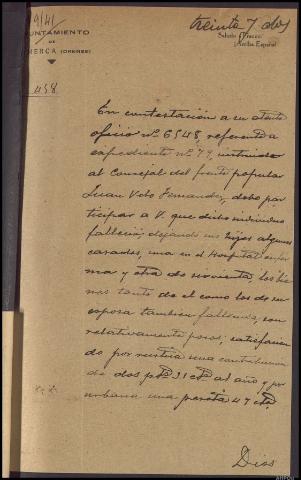 treinta y dos
9/41
UNTAMIENTO
DE
MERCA (ORENSE)
Saludo a Franco
¡Arriba España!
458
En contestación a su atento
oficio nº 6548, referente a
expediente nº 79, instruido
al Concejal del frente popular
Juan Vdo Fernandez, debo par
ticipar a V. que dicho individuo
falleció, dejando sus hijos algunos
casados, una en el Hospital enfer
ma y otra de sirvienta, los bie
nes tanto de el como los de su
esposa tambien fallecida, son
relativamente pocos, satisfacien
do por rustica una contribucion
de dos pts 31 cts al año y por
urbana una peseta 47 cts.
Dios